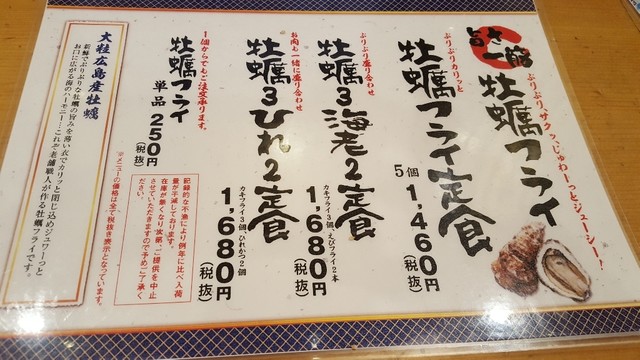 旨さ一番
ぷりぷり、ザクッ、じゅわーっとジューシー!
牡蠣フライ
ぷりぷりカリッと
牡蠣フライ定食
5個 1,460円(税抜)
ぷりぷり盛り合わせ
牡蠣3海老2定食
カキフライ3個、えびフライ2本
1,680円(税抜)
お肉も一緒に盛り合わせ
牡蠣3ひれ2定食
カキフライ3個、ひれかつ2個
1,680円(税抜)
1個からでもご注文承ります。
牡蠣フライ
単品 250円(税抜)
記録的な不漁により例年に比べ入荷
量が激減しております。
在庫が無くなり次第、ご提供を中止
させていただきますので予めご了承く
ださい。
※メニューの価格は全て税抜き表示となっています。
大粒広島産牡蠣
新鮮でぷりぷりな牡蠣の旨みを薄い衣でカリッと閉じ込めジュワーっと
お口に広がる海のハーモニー…これぞ老舗職人が作る牡蠣フライです。